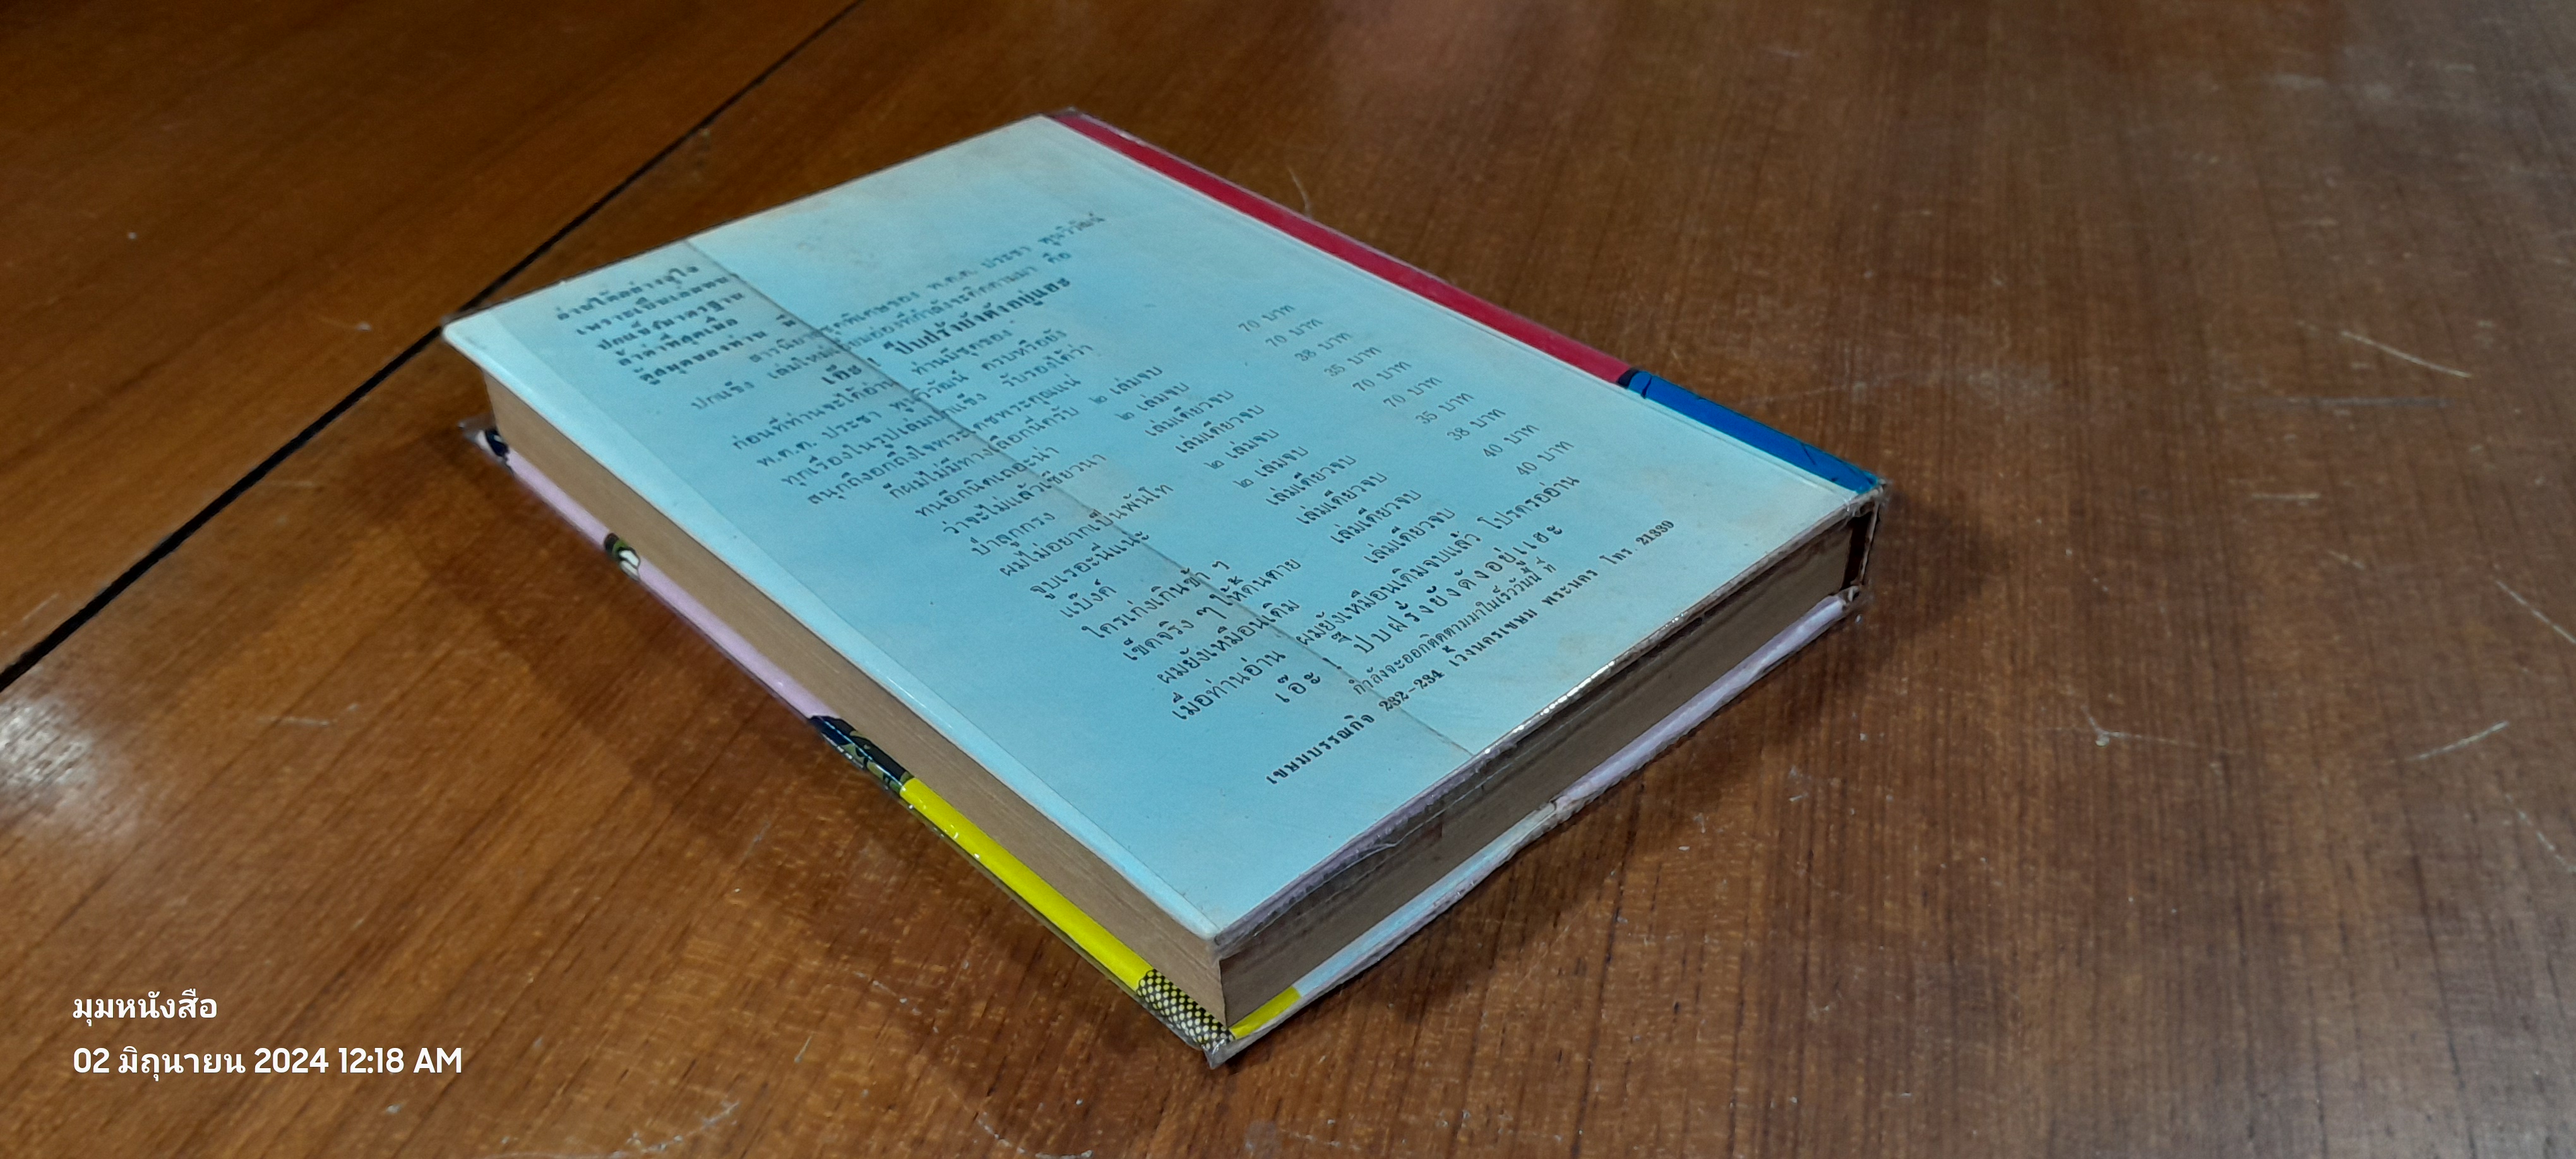 อ่านได้อย่างจุใจ
เพราะเป็นเล่มจบ
ปกแข็งมาตรฐาน
ล้ำค่าที่สุดเมื่อ
ตู้สมุดของท่าน มี
พ.ต.ต. ประชา พูนวิวัฒน์
ปกแข็ง เล่มใหม่
เอ๊ะ ! ปืนฝรั่งยังดังอยู่แฮะ
ก่อนที่ท่านจะได้อ่าน ท่านมีชุดของ
พ.ต.ต. ประชา พูนวิวัฒน์ ครบหรือยัง
ทุกเรื่องในรูปเล่มปกแข็ง รับรองได้ว่า
สนุกถึงอกถึงใจพระเดชพระคุณแน่
ก็ผมไม่มีทางเลือกนี่ครับ ๒ เล่มจบ 70 บาท
ทนอีกนิดเถอะน่า ๒ เล่มจบ 70 บาท
ว่าจะไม่แล้วเชียวนา เล่มเดียวจบ 38 บาท
ป่าลูกกรง เล่มเดียวจบ 35 บาท
ผมไม่อยากเป็นพันโท ๒ เล่มจบ 70 บาท
จูบเรอะนี่แน่ะ ๒ เล่มจบ 70 บาท
แบ๊งค์ เล่มเดียวจบ 35 บาท
ใครเก่งเกินช้า ๆ เล่มเดียวจบ 38 บาท
เข็ดจริง ๆ ให้ดิ้นตาย เล่มเดียวจบ 40 บาท
ผมยังเหมือนเดิม เล่มเดียวจบ 40 บาท
เมื่อท่านอ่าน ผมยังเหมือนเดิมจบแล้ว โปรดรออ่าน
เอ๊ะ ! ปืนฝรั่งยังดังอยู่แฮะ
กำลังจะออกติดตามมาในเร็ววันนี้ ที่
เขษมบรรณกิจ 232-234 เวิ้งนครเขษม พระนคร โทร 21339
มุมหนังสือ
02 มิถุนายน 2024 12:18 AM